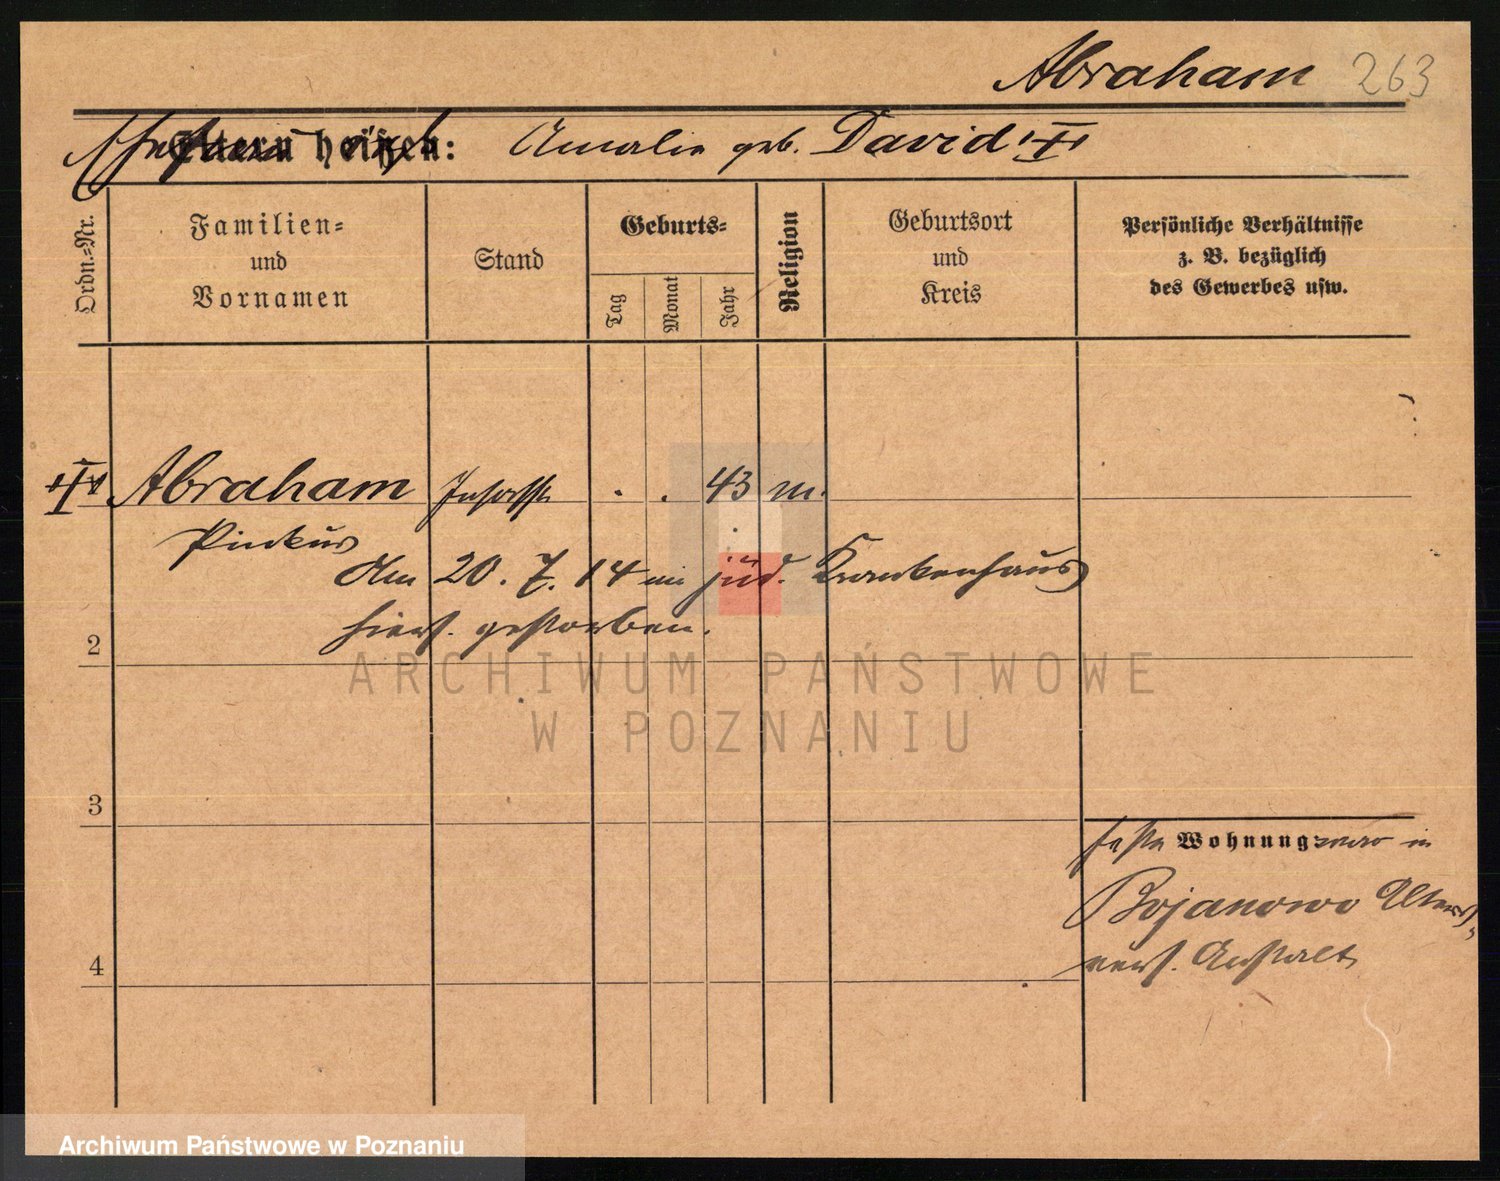 Abraham 263
Eltern heißen: Amalie geb. David
Ordn.=Nr.
Familien=
und
Vornamen
Stand
Geburts=
Tag
Monat
Jahr
Religion
Geburtsort
und
Kreis
Persönliche Verhältnisse
z. B. bezüglich
des Gewerbes usw.
Abraham . . 43 m.
Pinkus
Am 20. 7. 14 im jüd. Krankenhaus
hiers. gestorben.
2
ARCHIWUM PAŃSTWOWE
W POZNANIU
3
feste Wohnung war in
Bojanowo Alters
vers. Anstalt
4
Archiwum Państwowe w Poznaniu